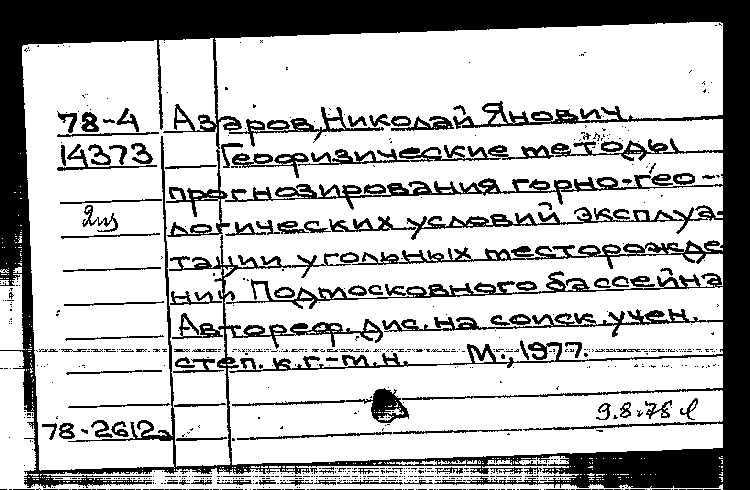 78-4 Азаров, Николай Янович.
14373 Геофизические методы
прогнозирования горно-гео-
логических условий эксплуа-
тации угольных месторожде
ний Подмосковного бассейна
Автореф. дис. на соиск. учен.
степ. к.г.-м.н. М., 1977.
9.8.78
78-2612а